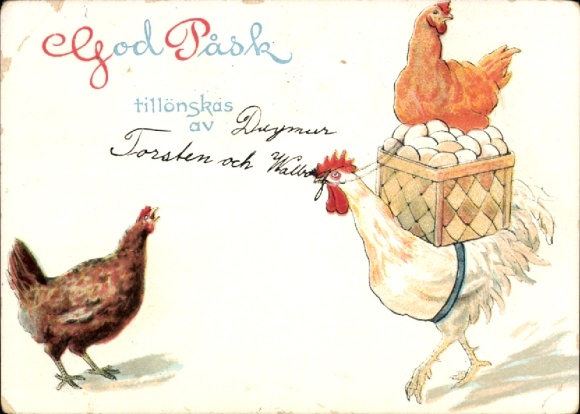 God Påsk
tillönskas
av Dagmar
Torsten och Walborg